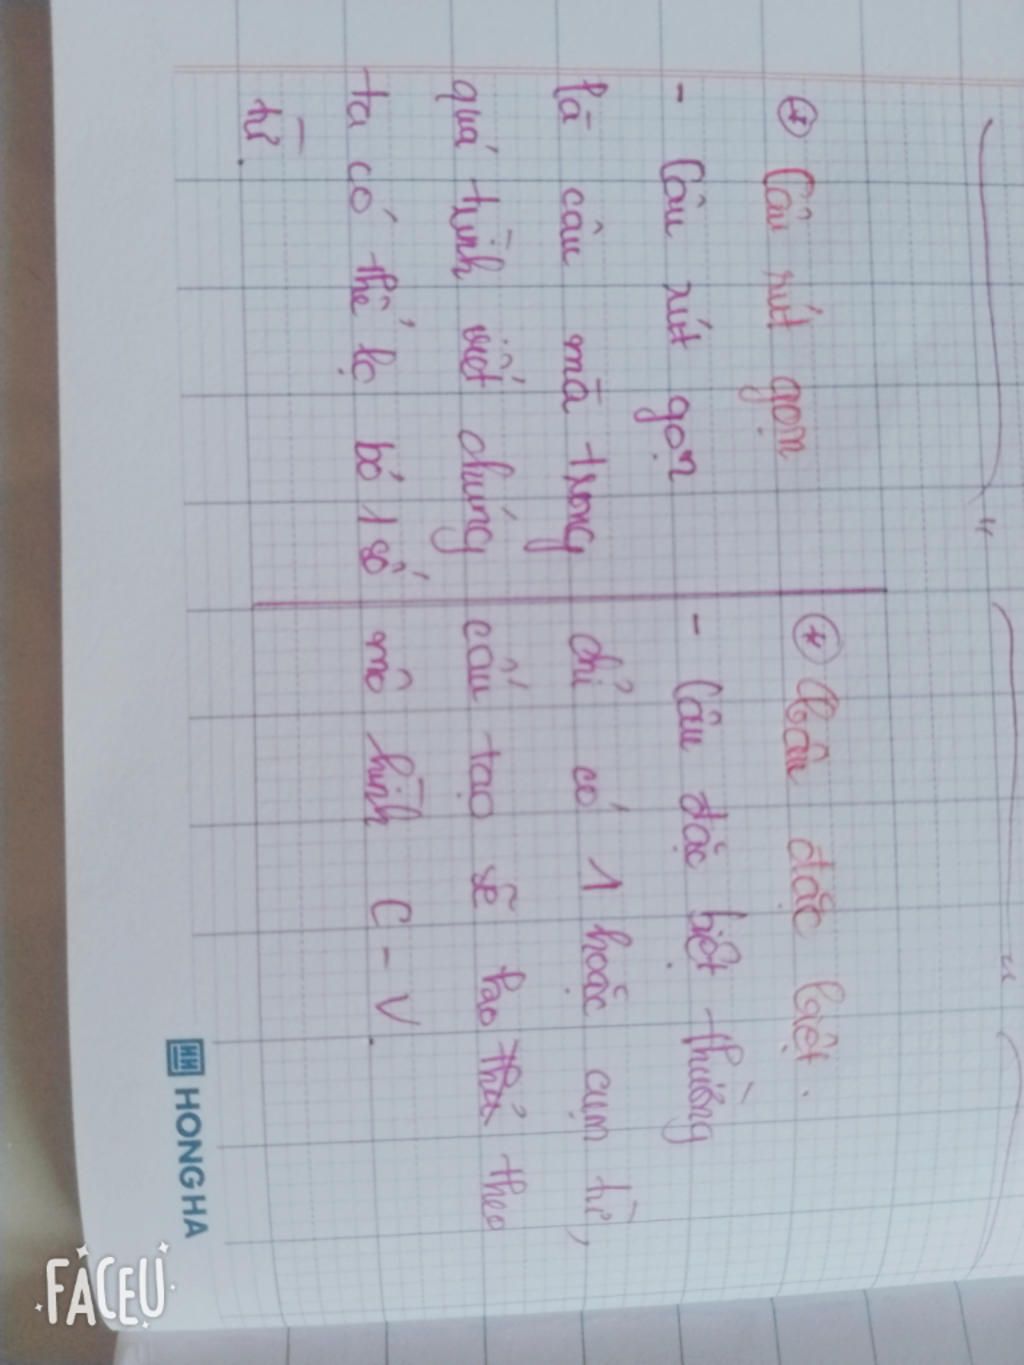 (*) Câu rút gọn
- Câu rút gọn
là câu mà trong
quá trình viết chúng
ta có thể lọ bỏ 1 số
từ.
(*) Câu đặc biệt.
- Câu đặc biệt thường
chỉ có 1 hoặc cụm từ,
cấu tạo sẽ theo
mô hình C - V.
HONG HA
FACEU